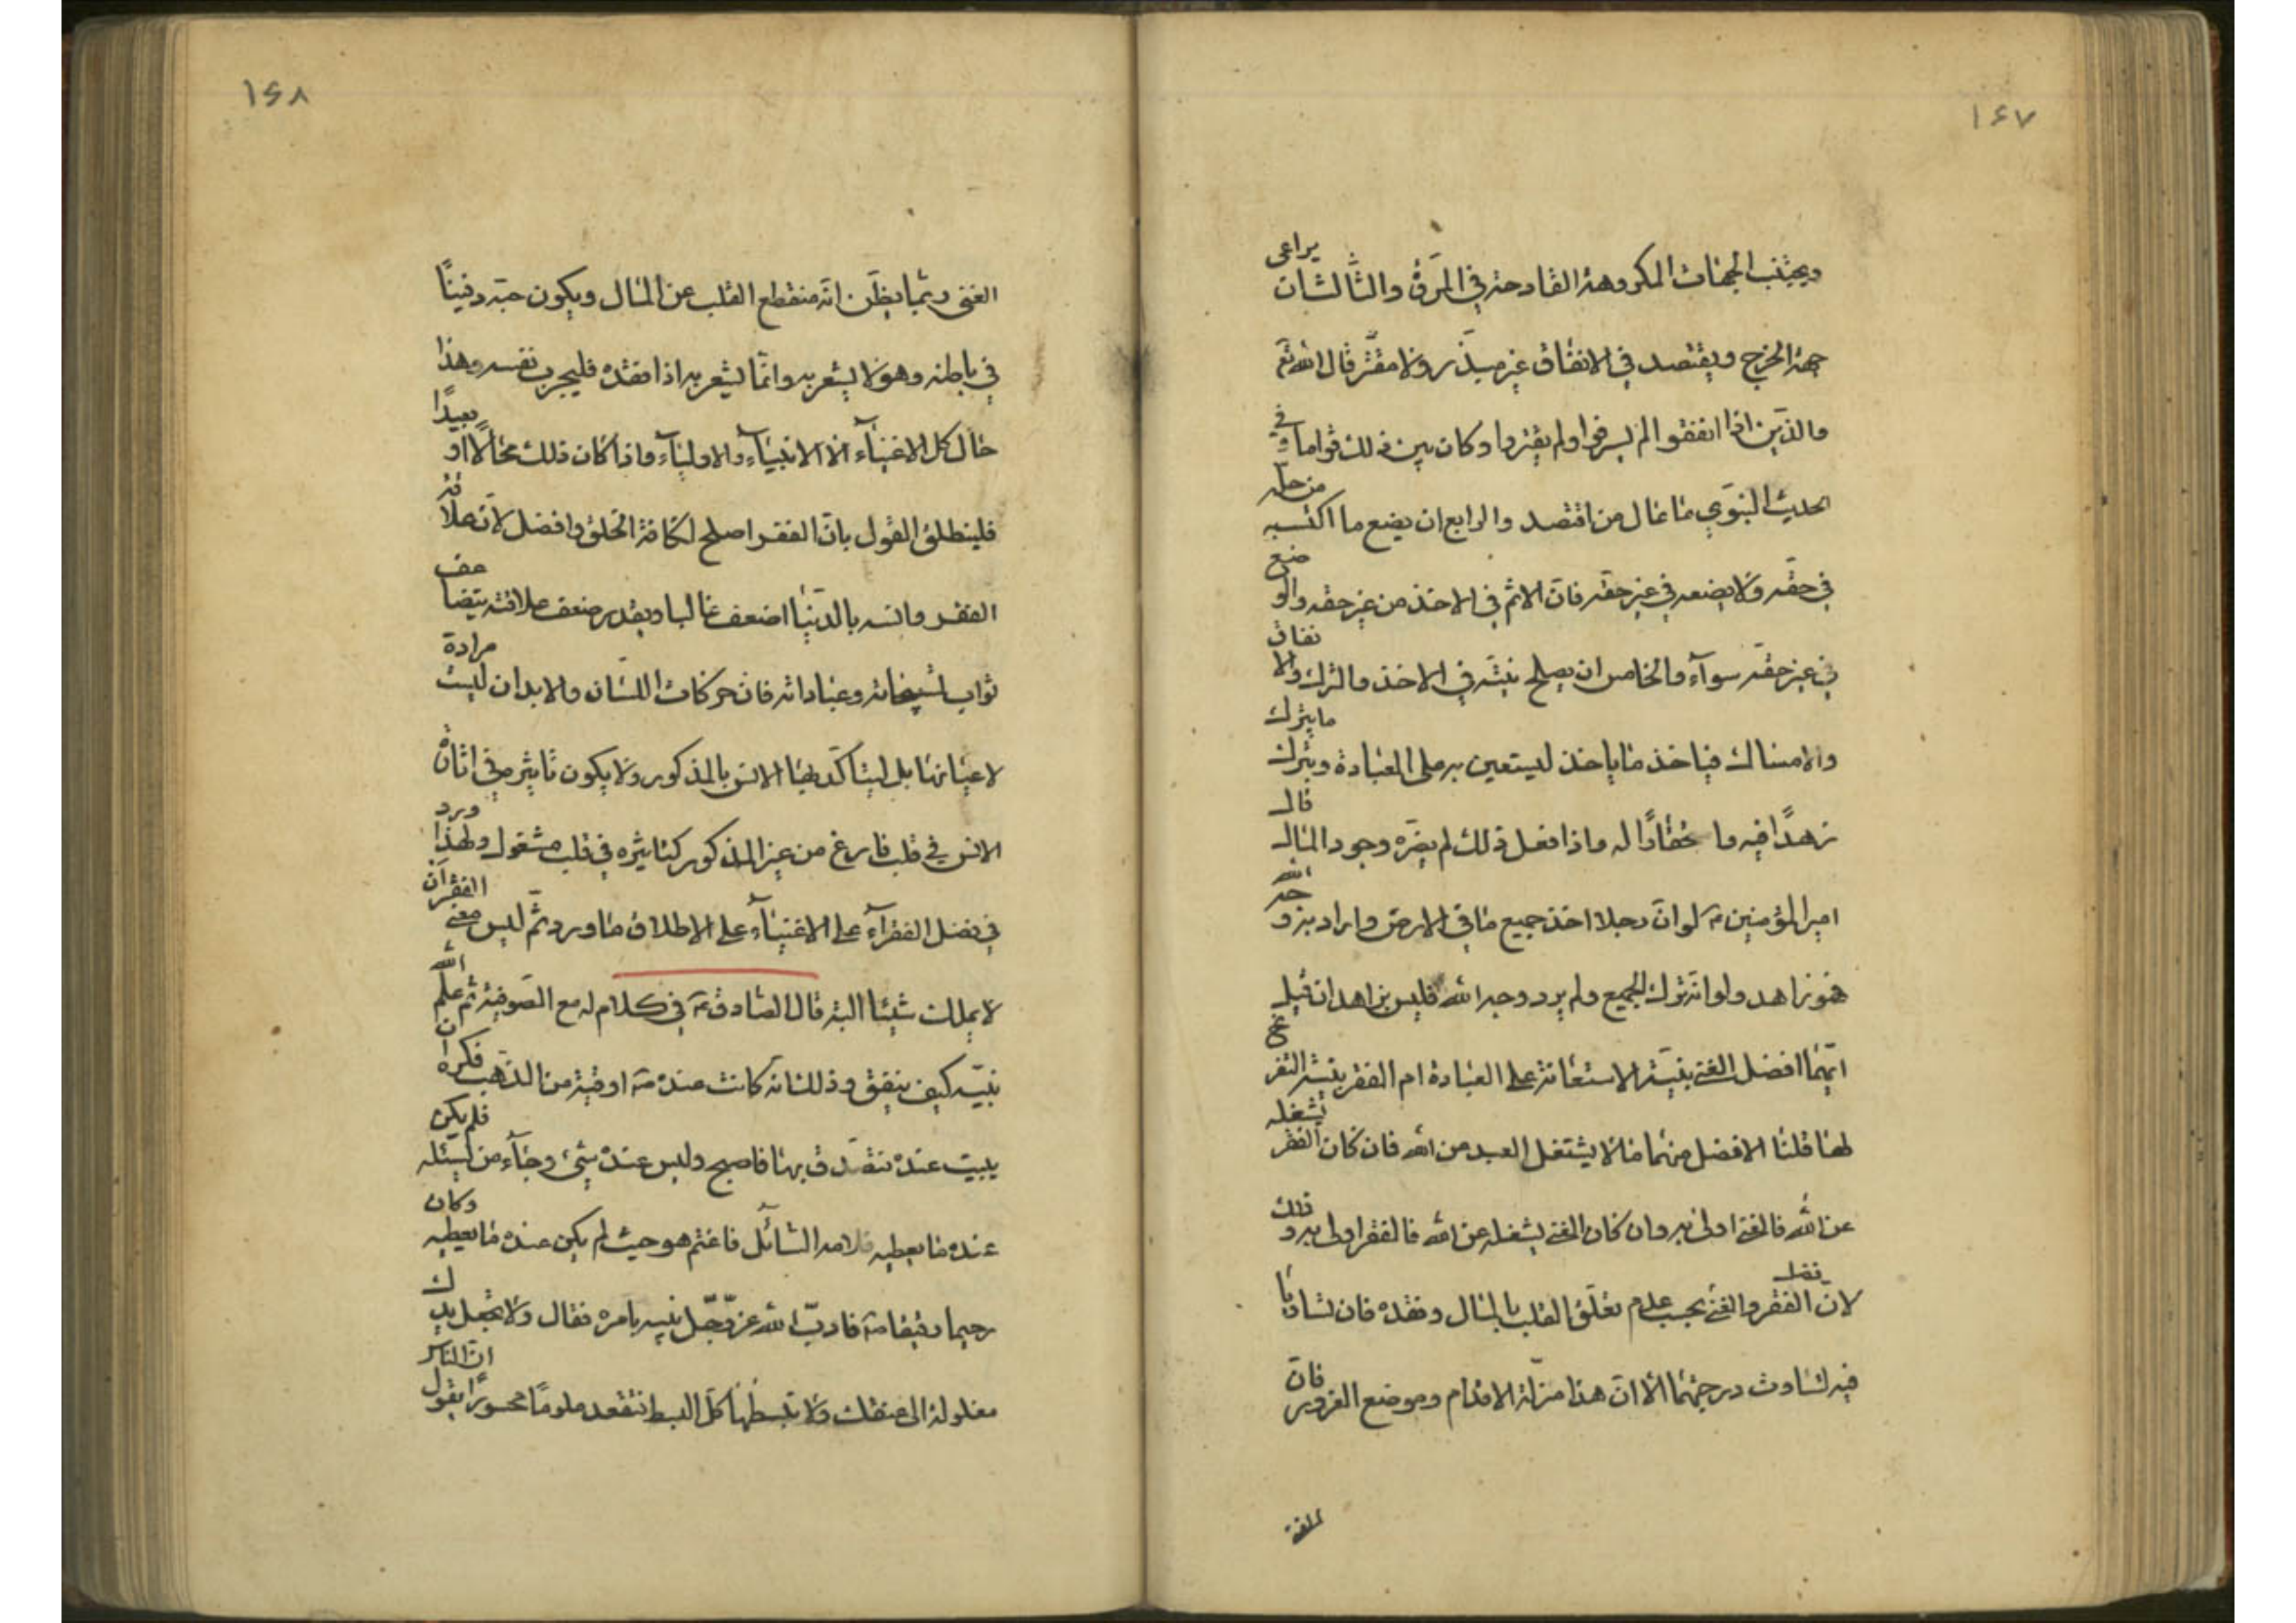 ١٤٧
ويجتنب الجهات المكروهة القادحة في المروة والثالث ان يراعى
جهة الخرج ويقتصد في الانفاق غير مبذر ولا مقتر قال الله تع
والذين اذا انفقوا لم يسرفوا ولم يقتروا وكان بين ذلك قواما وفي
الحديث النبوي ما عال من اقتصد والرابع ان يضع ما اكتسبه من حله
في حقه ولا يضعه في غير حقه فان الاثم في الاخذ من غير حقه والوضع
في غير حقه سواء والخامس ان يصلح نيته في الاخذ والترك والانفاق
والامساك فياخذ ما ياخذ ليستعين به على العبادة ويترك ما يترك
زهدا فيه واستحقارا له واذا فعل ذلك لم يضره وجود المال قال
امير المؤمنين ع لو ان رجلا اخذ جميع ما في الارض واراد به وجه الله
فهو زاهد ولو انه ترك الجميع ولم يرد وجه الله فليس بزاهد ان قيل
ايهما افضل الغنى بنية الاستعانة على العبادة ام الفقر بنية التفرغ
لها قلنا الافضل منهما ما لا يشتغل العبد من الله فان كان الفقر يشغله
عن الله فالغنى اولى به وان كان الغنى يشغله عن الله فالفقر اولى به وذلك
لان فضل الفقر والغنى بحسب عدم تعلق القلب بالمال وفقده فان تساويا
فيه تساوت درجتهما الا ان هذا مزلة الاقدام وموضع الغرور فان
الغنى
١٤٨
الغنى ربما يظن انه منقطع القلب عن المال ويكون حبه دفينا
في باطنه وهو لا يشعر به وانما يشعر به اذا فقده فليجرب نفسه وهذا
حال كل الاغنياء الا الانبياء والاولياء واذا كان ذلك محالا او بعيدا
فلينطلق القول بان الفقر اصلح لكافة الخلق وافضل لان علاقة
الفقر وانسه بالدنيا اضعف غالبا وبقدر ضعف علاقته يتضاعف
ثواب تسبيحاته وعباداته فان حركات اللسان والابدان ليست مرادة
لاعيانها بل ليتاكد بها الانس بالمذكور ولا يكون تاثيرها في اثارة
الانس في قلب فارغ من غير المذكور كتاثيره في قلب مشغول ولهذا ورد
في فضل الفقراء على الاغنياء على الاطلاق ما ورد ثم ليس معنى الفقر ان
لا يملك شيئا البتة قال الصادق ع في كلام له مع الصوفية ثم علم الله
نبيه كيف ينفق وذلك انه كانت عنده ص اوقية من الذهب فكره ان
يبيت عنده فتصدق بها فاصبح وليس عنده شئ وجاء من يسئله فلم يكن
عنده ما يعطيه فلامه السائل فاغتم هو حيث لم يكن عنده ما يعطيه وكان
رحيما رفيقا ص فادب الله عز وجل نبيه بامره فقال ولا تجعل يدك
مغلولة الى عنقك ولا تبسطها كل البسط فتقعد ملوما محسورا يقول ان الناس